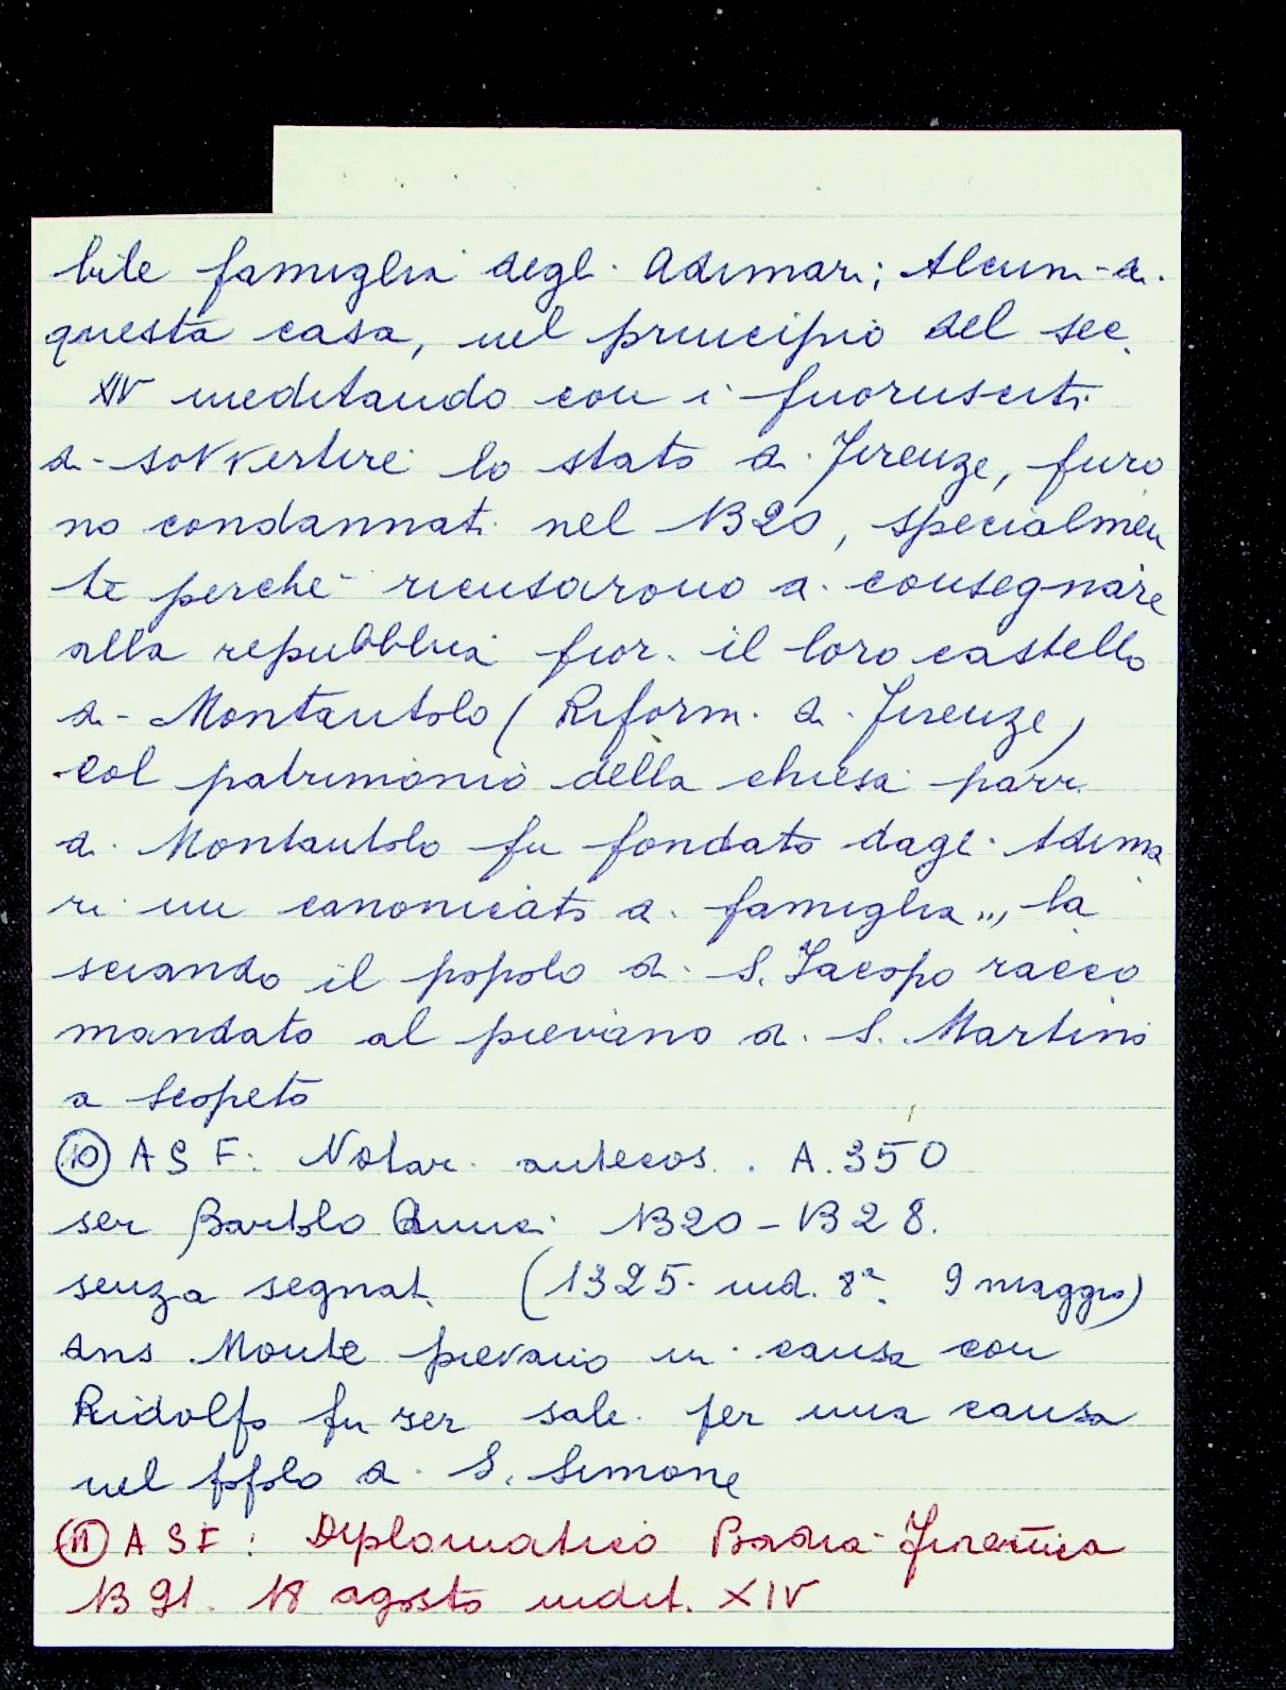 bile famiglia degli Adimari; Alcuni di
questa casa, nel principio del sec.
XIV meditando con i fuorusciti
di sovvertire lo stato di Firenze, furo
no condannati nel 1320, specialmen
te perché ricusarono di consegnare
alla repubblica fior. il loro castello
di Montautolo (Riform. di Firenze)
Col patrimonio della chiesa parr.
di Montautolo fu fondato dagli Adima
ri un canonicato di famiglia,, la
sciando il popolo di S. Jacopo racco
mandato al pievano di S. Martino
a Scopeto
(10) A S F: Notar. antecos. . A. 350
ser Bartolo 1320-1328.
senza segnat. (1325. ind. 8ª. 9 maggio)
dns Monte pievano in causa con
Ridolfo fu ser sale. per una causa
nel popolo di S. Simone
(11) A S F: Diplomatico Badia Fiorentina
1391. 18 agosto indit. XIV